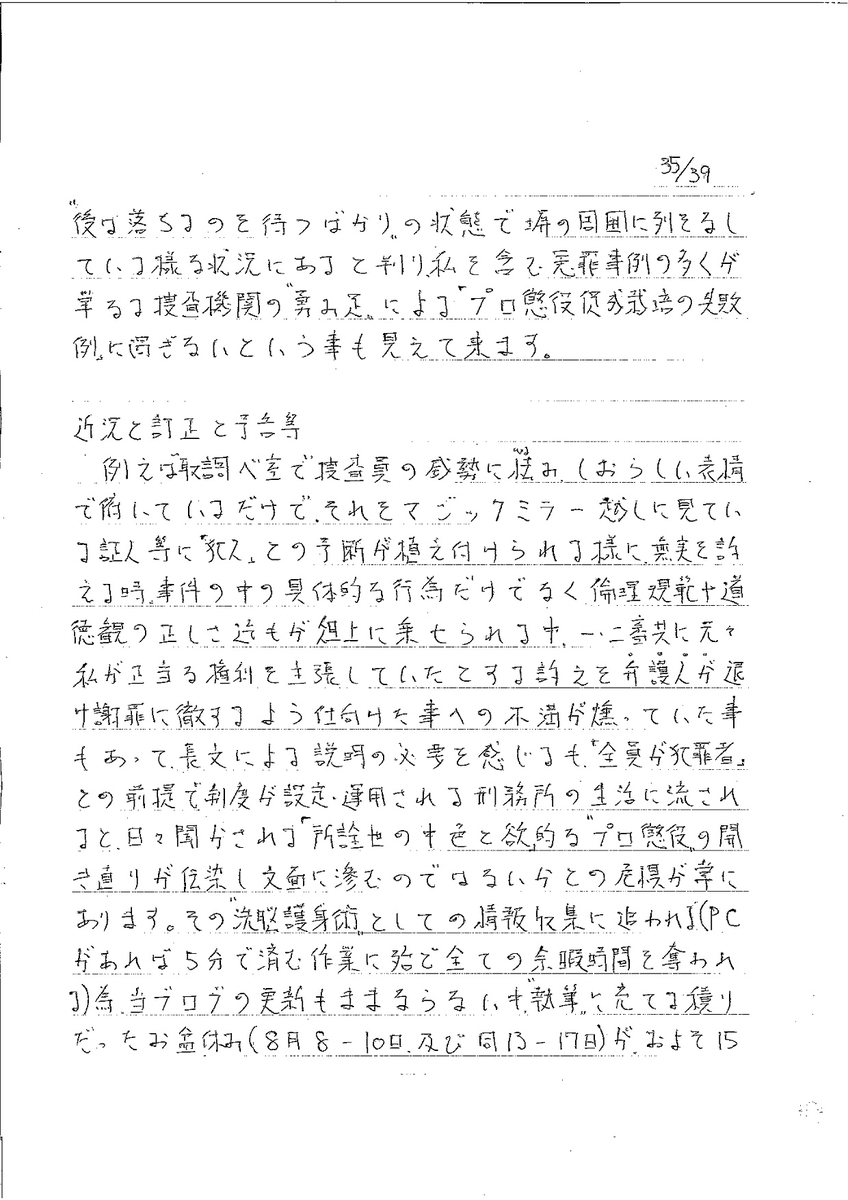 35/39
“後は落ちるのを待つばかり”の状態で塀の周囲に列をなし
ている様な状況にあると判り、私を含む冤罪事例の多くが
単なる捜査機関の“勇み足”による「プロ懲役促成栽培の失敗
例」に過ぎないという事も見えて来ます。
近況と訂正と予告等
例えば取調べ室で捜査員の威勢に怯み、しおらしい表情
で俯いているだけで、それをマジックミラー越しに見てい
る証人等に「犯人」との予断が植え付けられる様に、無実を訴
える時、事件の中の具体的な行為だけでなく倫理規範や道
徳観の正しさ迄もが俎上に乗せられる中、一・二審共に元々
私が正当な権利を主張していたとする訴えを弁護人が退
け謝罪に徹するよう仕向けた事への不満が燻っていた事
もあって、長文による説明の必要を感じるも、「全員が犯罪者」
との前提で制度が設定・運用される刑務所の生活に流され
ると、日々聞かされる「所詮世の中色と欲」的な“プロ懲役”の開
き直りが伝染し文面に滲むのではないかとの危惧が常に
あります。その“洗脳護身術”としての情報収集に追われる(PC
があれば5分で済む作業に殆ど全ての余暇時間を奪われ
る)為、当ブログの更新もままならない中、“執筆”に充てる積り
だったお盆休み(8月8-10日、及び同13-17日)が、およそ15